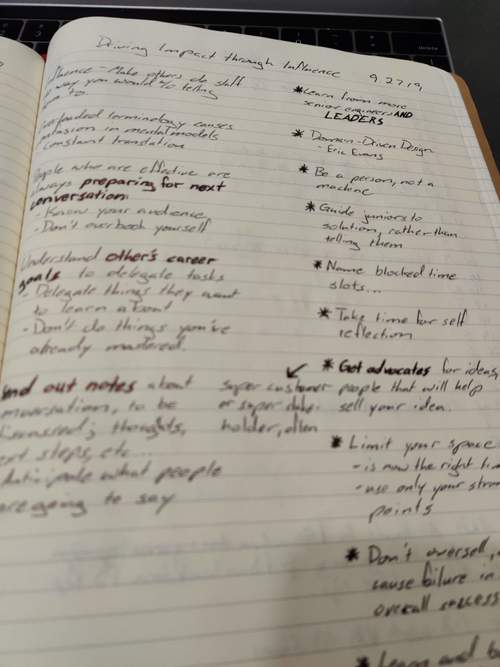 Driving Impact through Influence 9.27.19
- Make others do stuff
way you would to telling
Overloaded terminology causes
confusion in mental models
constant translation
People who are effective are
always preparing for next
conversation:
- Know your audience
- Don't overbook yourself
Understand other's career
goals to delegate tasks
- Delegate things they want
to learn about
- Don't do things you've
already mastered.
Send out notes about
conversation, to be
thoughts,
next steps, etc...
Anticipate what people
are going to say
* Learn from more
senior engineers AND
LEADERS
* Domain-Driven Design
- Eric Evans
* Be a person, not a
machine
* Guide juniors to
solution, rather than
telling them
* Name blocked time
slots...
* Take time for self
reflection
* Get advocates for ideas,
people that will help
sell your idea.
super customer
or super stake-
holder, often
* Limit your space
- is now the right
- use only your
points
* Don't oversell,
cause failure in
overall success
* Learn and